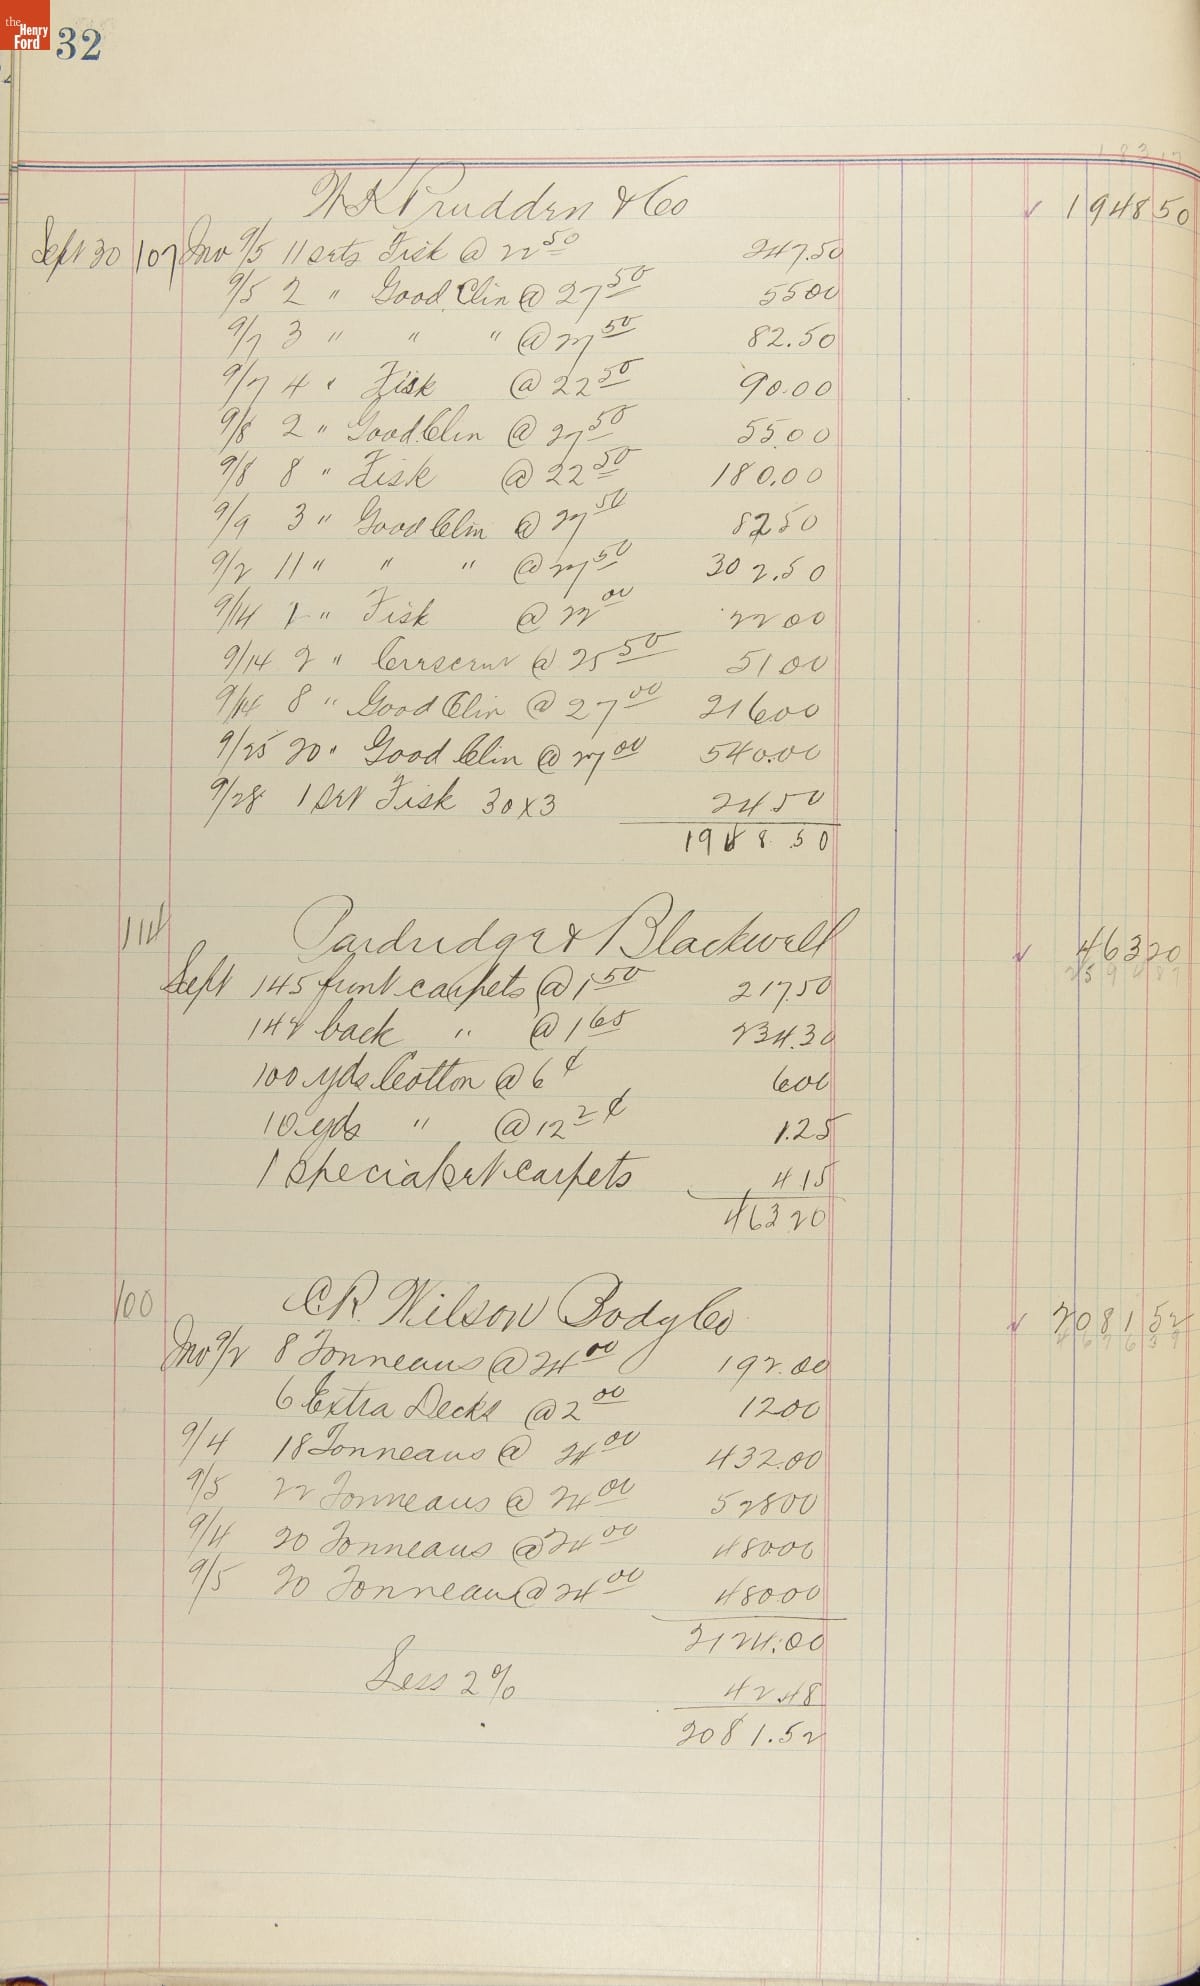 the Henry Ford
32
W K Prudden & Co 1948 50
Sept 30 107 Inv 9/5 11 sets Fisk @ 22 50 247.50
9/5 2 " Good Clin @ 27 50 55 00
9/7 3 " " " @ 27 50 82.50
9/7 4 " Fisk @ 22 50 90.00
9/8 2 " Good Clin @ 27 50 55.00
9/8 8 " Fisk @ 22 50 180.00
9/9 3 " Good Clin @ 27 50 82 50
9/2 11 " " " @ 27 50 302.50
9/14 1 " Fisk @ 22 00 22 00
9/14 2 " @ 25 50 51 00
9/14 8 " Good Clin @ 27 00 216 00
9/25 20 " Good Clin @ 27 00 540.00
9/28 1 set Fisk 30 x 3 24 50
1948.50
114 Pardridge & Blackwell 463 20
Sept 145 front carpets @ 1 50 217.50
142 back " @ 1 65 234.30
100 yds Cotton @ 6 ¢ 6 00
10 yds " @ 12 2 ¢ 1.25
1 special set carpets 4 15
463 20
100 C.R. Wilson Body Co 2081 52
Inv 9/2 8 Tonneaus @ 24 00 192.00
6 Extra Decks @ 2 00 12 00
9/4 18 Tonneaus @ 24 00 432.00
9/5 22 Tonneaus @ 24 00 528 00
9/4 20 Tonneaus @ 24 00 480 00
9/5 20 Tonneau @ 24 00 480.00
2124.00
Less 2% 42.48
2081.52